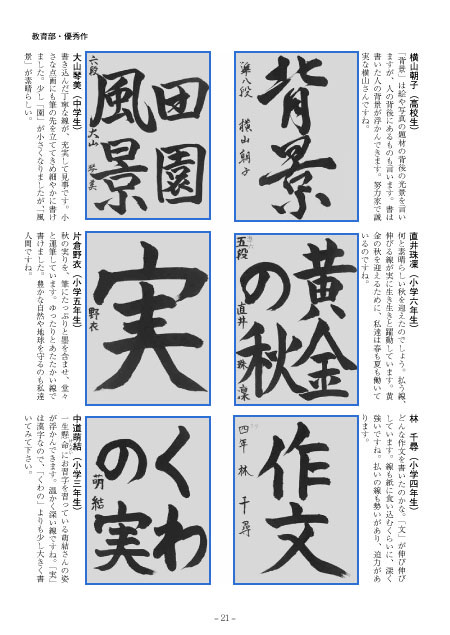 教育部・優秀作
横山朝子（高校生）
「背景」は絵や写真の題材の背後の光景を言い
ますが、人の背後にあるものも言います。書は
書いた人の背景が浮かんできます。努力家で誠
実な横山さんですね。
背景
準八段 横山朝子
田園
風景
六段 大山 琴美
大山琴美（中学生）
書き込んだ丁寧な線が、充実して見事です。小
さな点画にも筆の先を立ててきめ細やかに書け
ました。少し「園」が小さくなりましたが、「風
景」が素晴らしい。
直井珠凜（小学六年生）
何と素晴らしい秋を迎えたのでしょう。払う線、
伸びる線が実に生き生きと躍動しています。黄
金の秋を迎えるために、私達は春も夏も働いて
いるのですね。
黄金
の秋
五段 直井 珠凜
実
野衣
片倉野衣（小学五年生）
秋の実りを、筆にたっぷりと墨を含ませ、堂々
と運筆しています。ゆったりとあたたかい線で
書けました。豊かな自然や地球を守るのも私達
人間ですね。
林　千尋（小学四年生）
どんな作文を書いたのかな。「文」が伸び伸び
しています。線も紙に食い込むくらいに、深く
強いですね。払いの線も勢いがあり、迫力があ
ります。
作文
四年 林 千尋
くわ
の実
萌結
中道萌結（小学三年生）
一生懸命にお習字を習っている萌結さんの姿
が浮かんできます。温かく深い線ですね。「実」
は漢字なので「くわの」よりも少し大きく書
いてみて下さい。
– 21 –